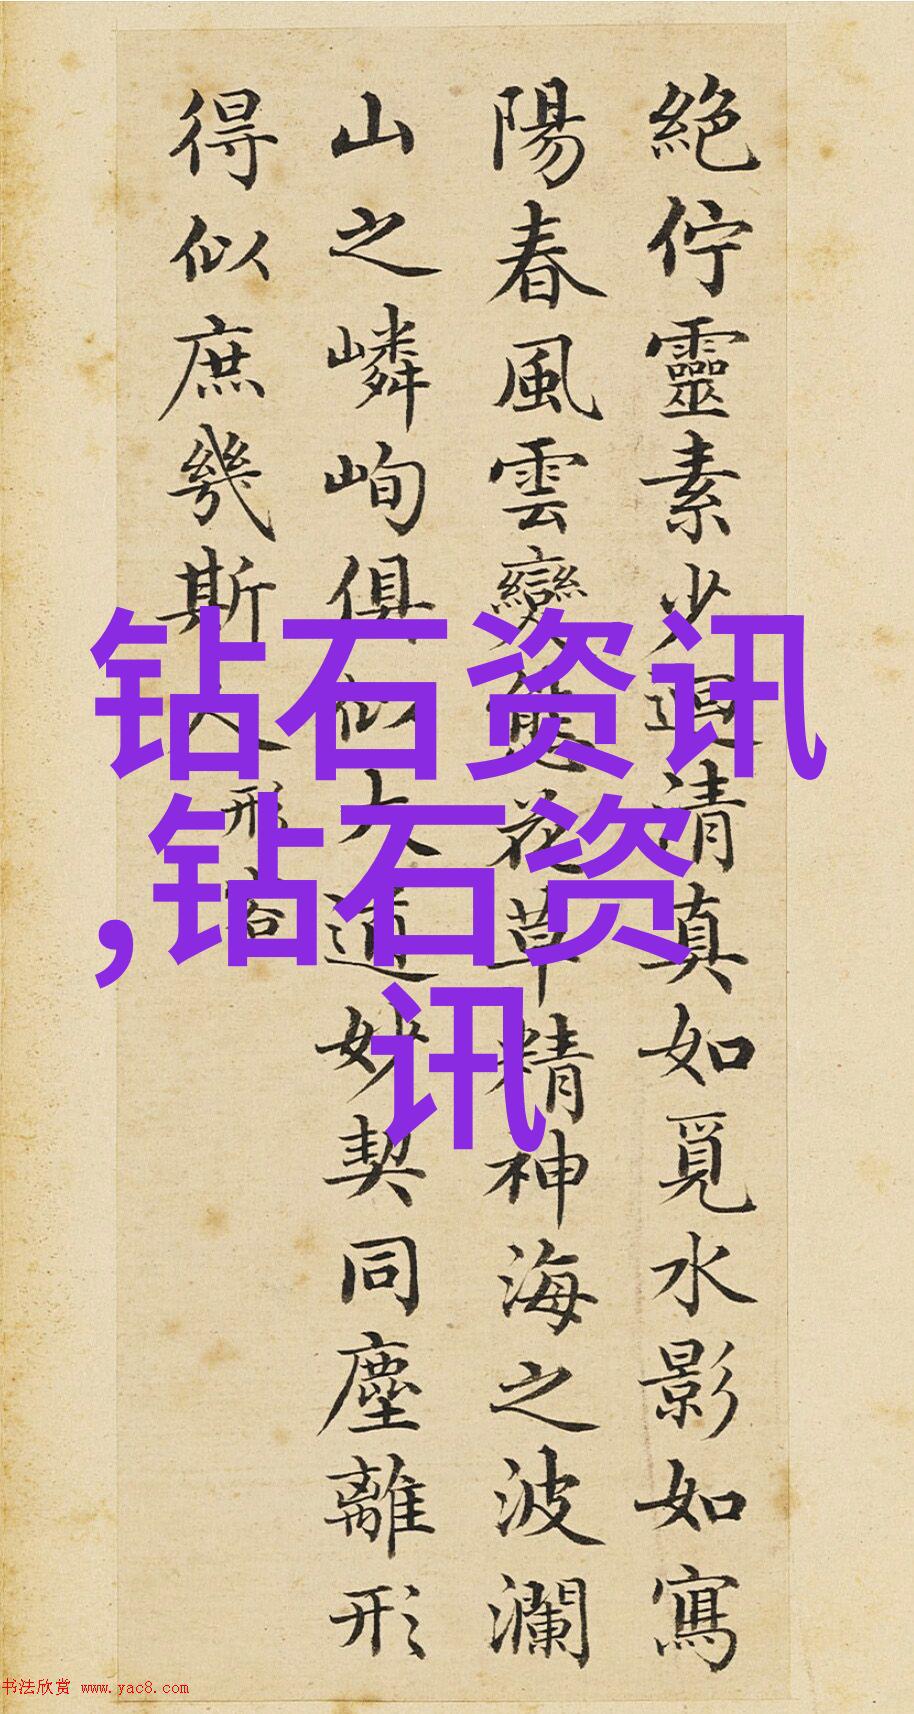 絕佇靈素少迴清真如覓水影如寫
陽春風雲變態花草精神海之波瀾
山之嶙峋俱似大道妙契同塵離形
得似庶幾斯人形容
钻石资讯
,钻石资
讯
书法欣赏 www.yac8.com